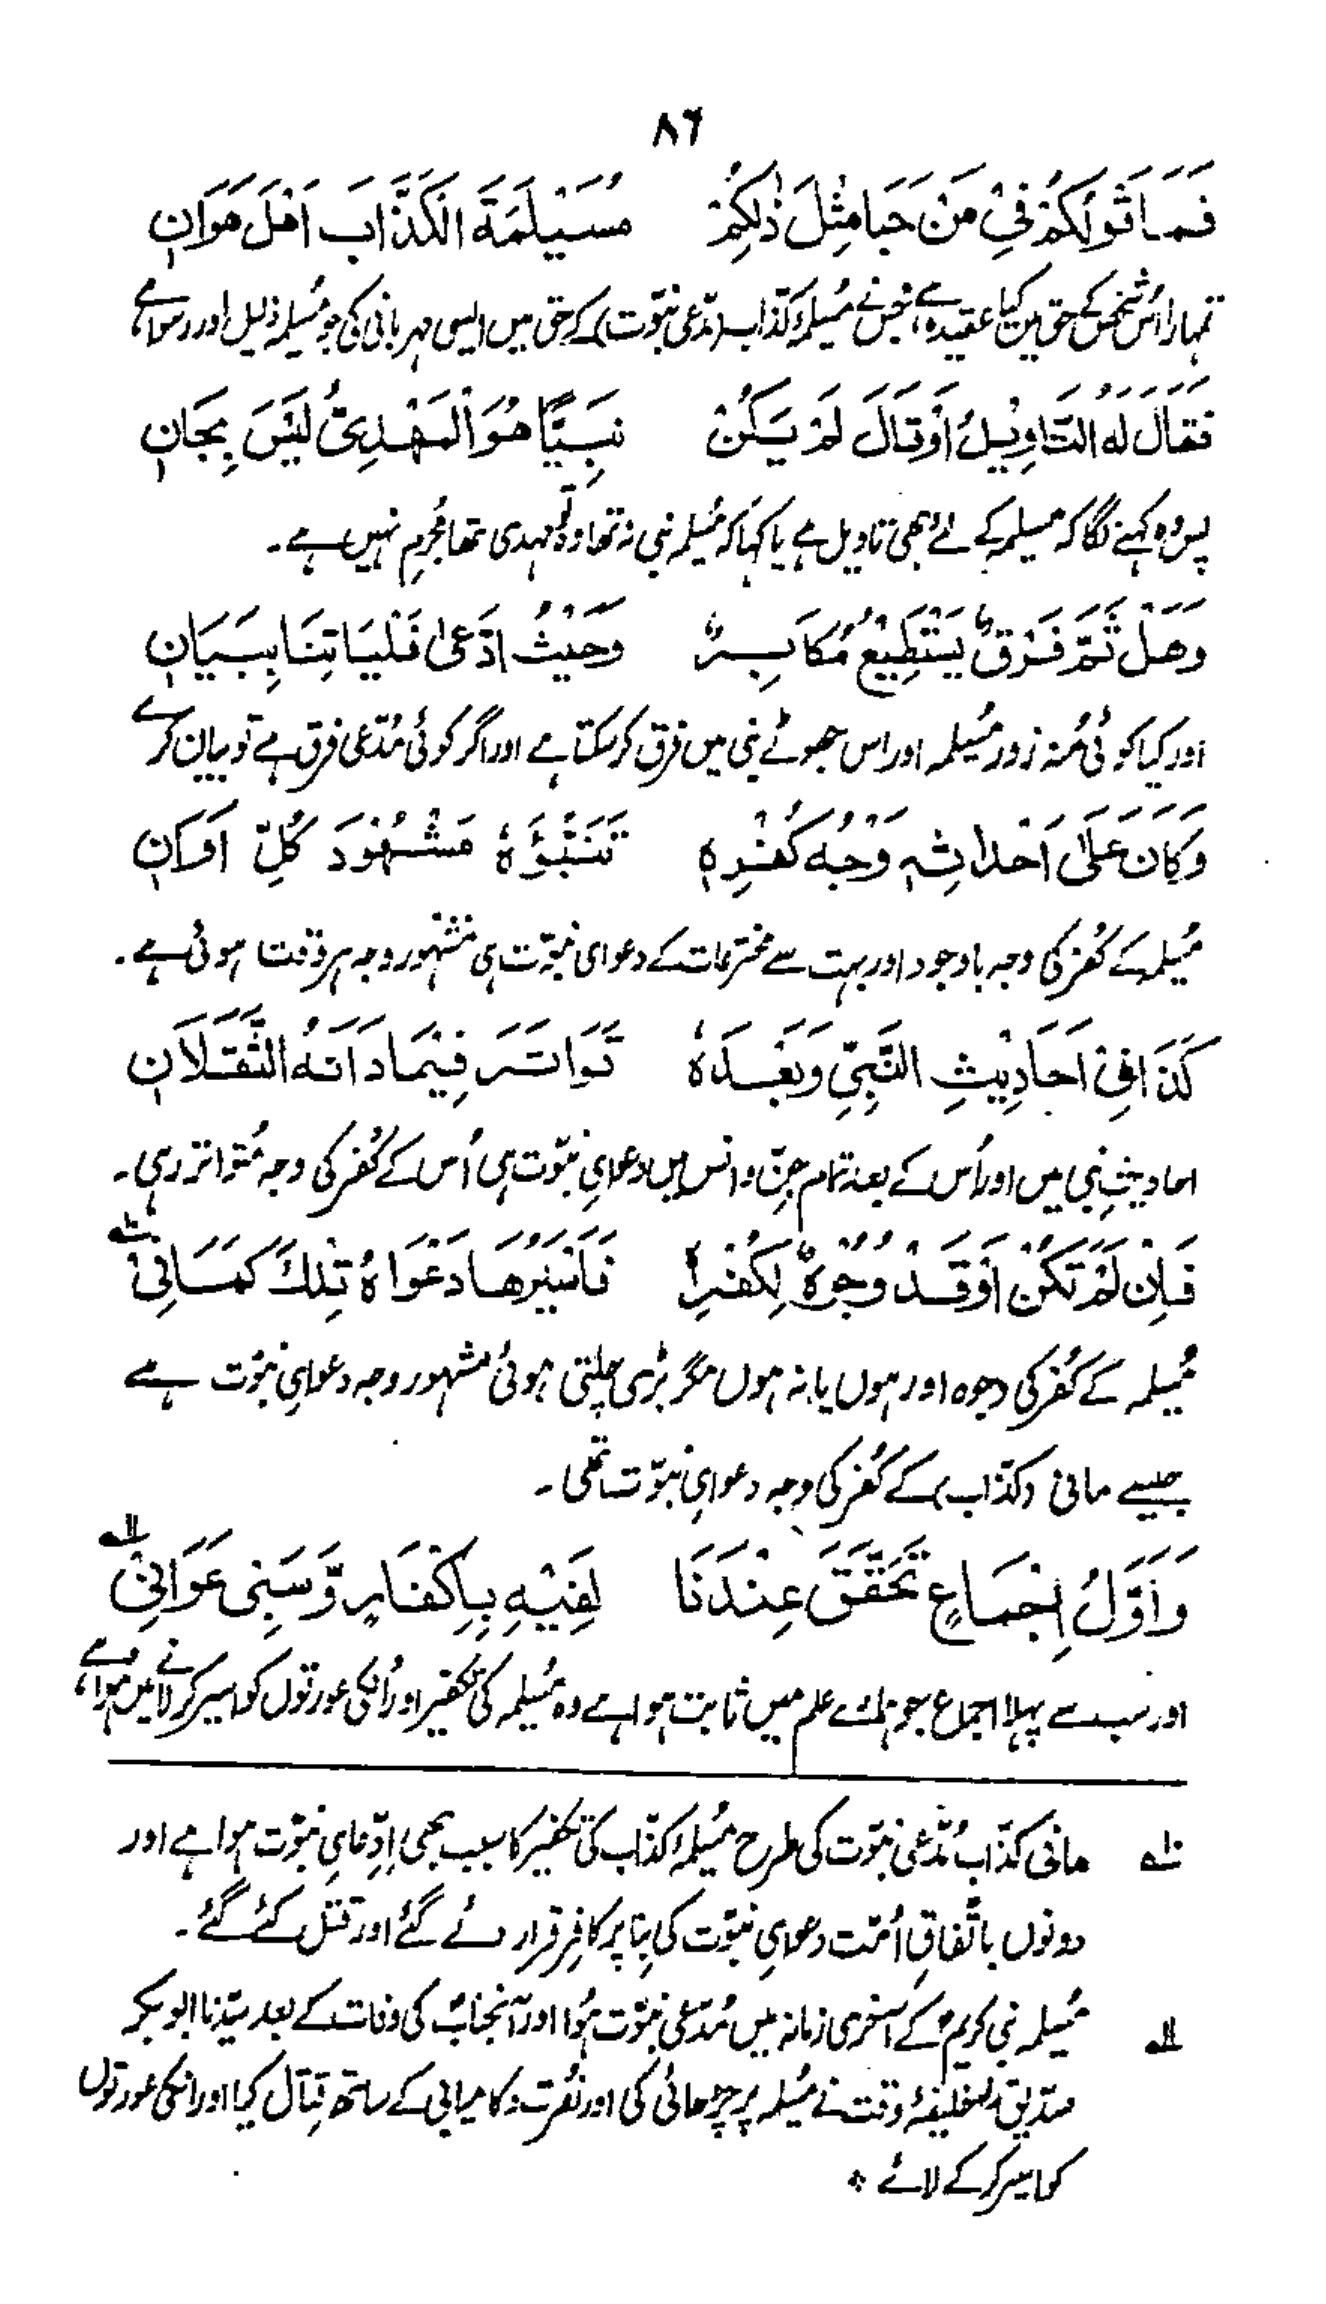 ۸۶
فَمَا قَوْلُكُمْ فِیْ مَنْ حَبَا مِثْلَ ذٰلِکُمْ مُسَیْلَمَةَ الْکَذَّابَ اَهْلَ هَوَانِ
تمہارا اُس شخص کے حق میں کیا عقیدہ ہے، جس نے مُسیلمۂ کذّاب (مدّعی نبوّت) کے حق میں ایسی مہربانی کی جو مُسیلمہ ذلیل اور رسوا ہے،
فَقَالَ لَهُ التَّاوِیْلُ اَوْ قَالَ لَمْ یَکُنْ نَبِیًّا هُوَ الْمَهْدِیُّ لَیْسَ بِجَانِ
پس وہ کہنے لگا کہ مسیلمہ کے لئے بھی تاویل ہے یا کہا کہ مُسیلمہ نبی نہ تھا وہ تو مہدی تھا مُجرم نہیں ہے۔
وَهَلْ ثَمَّ فَرْقٌ یَسْتَطِیْعُ مُکَابِرٌ وَحَیْثُ ادَّعٰی فَلْیَاتِنَا بِبَیَانِ
اور کیا کوئی مُنہ زور مُسیلمہ اور اس جھوٹے نبی میں فرق کر سکتا ہے اور اگر کوئی مُدّعی فرق ہے تو بیان کرے
وَکَانَ عَلٰی اَحْدَاثِهٖ وَجْهُ کُفْرِهٖ تَنَبُّؤُهٗ مَشْهُوْدَ کُلِّ اَوَانِ
مُسیلمہ کے کُفر کی وجہ باوجود اور بہت سے مخترعات کے دعوای نبوّت ہی مشہور وجہ ہر وقت ہوئی ہے۔
کَذَا فِیْ اَحَادِیْثِ النَّبِیِّ وَبَعْدَهٗ تَوَاتَرَ فِیْمَا دَانَهُ الثَّقَلَانِ
احادیثِ نبی میں اور اُس کے بعد تمام جِنّ و انس میں دعوایِ نبوّت ہی اُس کے کُفر کی وجہ مُتواتر رہی۔
فَاِنْ لَمْ تَکُنْ اَوْ قَدْ وُجُوْهٌ لِکُفْرِهٖ فَاَسْیَرُهَا دَعْوَاهُ تِلْكَ کَمَانِیْ ۱۰؎
مُسیلمہ کے کُفر کی وجوہ اور ہوں یا نہ ہوں مگر بڑی چلتی ہوئی مشہور وجہ دعوایِ نبوّت ہے
جیسے مانی (کذّاب) کے کُفر کی وجہ دعوایِ نبوّت تھی۔
وَاَوَّلُ اِجْمَاعٍ تَحَقَّقَ عِنْدَنَا لَفِیْهِ بِاِکْفَارٍ وَّسَبْیِ غَوَانِیْ ۱۱؎
اور سب سے پہلا اجماع جو ہمارے علم میں ثابت ہوا ہے وہ مُسیلمہ کی تکفیر اور اُنکی عورتوں کو اسیر کر لانے میں ہوا ہے،
۱۰؎ مانی کذّاب مُدّعی نبوّت کی طرح مُسیلمۂ کذّاب کی تکفیر کا سبب بھی اِدّعایِ نبوّت ہوا ہے اور
دونوں باتّفاقِ اُمّت دعوایِ نبوّت کی بِنا پر کافِر قرار دئے گئے اور قتل کئے گئے۔
۱۱؎ مُسیلمہ نبی کریمؐ کے آخری زمانہ میں مُدّعی نبوّت ہُوا اور آنجنابؐ کی وفات کے بعد سیّدنا ابو بکر
صدّیقؓ خلیفۂ وقت نے مُسیلمہ پر چڑھائی کی اور نُصرت و کامیابی کے ساتھ قِتال کیا اور انکی عورتوں
کو اسیر کر کے لائے ٭